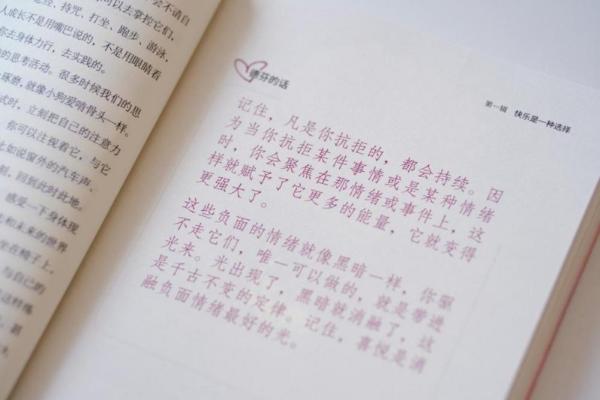 会不请自
可以去掌控它们，
持咒、打坐、跑步、游泳，
人成长不是用嘴巴说的，不是用眼睛看
你去身体力行，去实践的。
的思考活动。很多时候我们的思
琢磨，就像小狗爱啃骨头一样。
试时，立刻把自己的注意力
你可以注视着它，与它
比如说窗外的汽车声、
回到此时此地。
感受一下身体现
和未来的世界
坐在椅子上，
与自己的
德芬的话
第一辑 快乐是一种选择
记住，凡是你抗拒的，都会持续。因
为当你抗拒某件事情或是某种情绪
时，你会聚焦在那情绪或事件上，这
样就赋予了它更多的能量，它就变得
更强大了。
这些负面的情绪就像黑暗一样，你驱
不走它们，唯一可以做的，就是带进
光来。光出现了，黑暗就消融了，这
是千古不变的定律。记住，喜悦是消
融负面情绪最好的光。